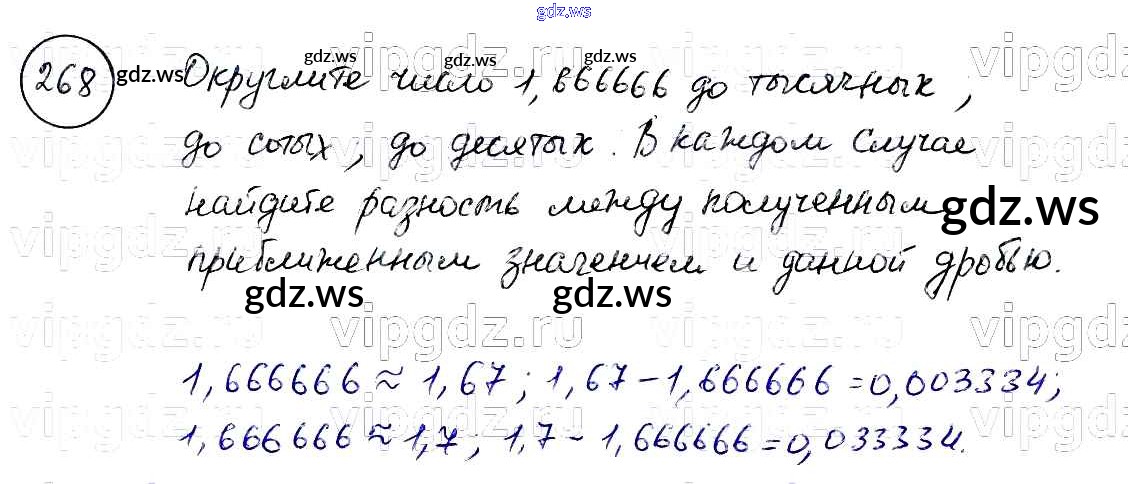 gdz.ws
268 gdz.ws Округлите gdz.ws число gdz.ws 1,666666 gdz.ws до тысячных,
до сотых, до десятых. В каждом случае
найдите разность между полученным gdz.ws
приближенным значением и данной дробью.
gdz.ws gdz.ws
vipgdz.ru
1,666666 ≈ 1,67; 1,67 - 1,666666 = 0,003334;
1,666666 ≈ 1,7; 1,7 - 1,666666 = 0,033334.